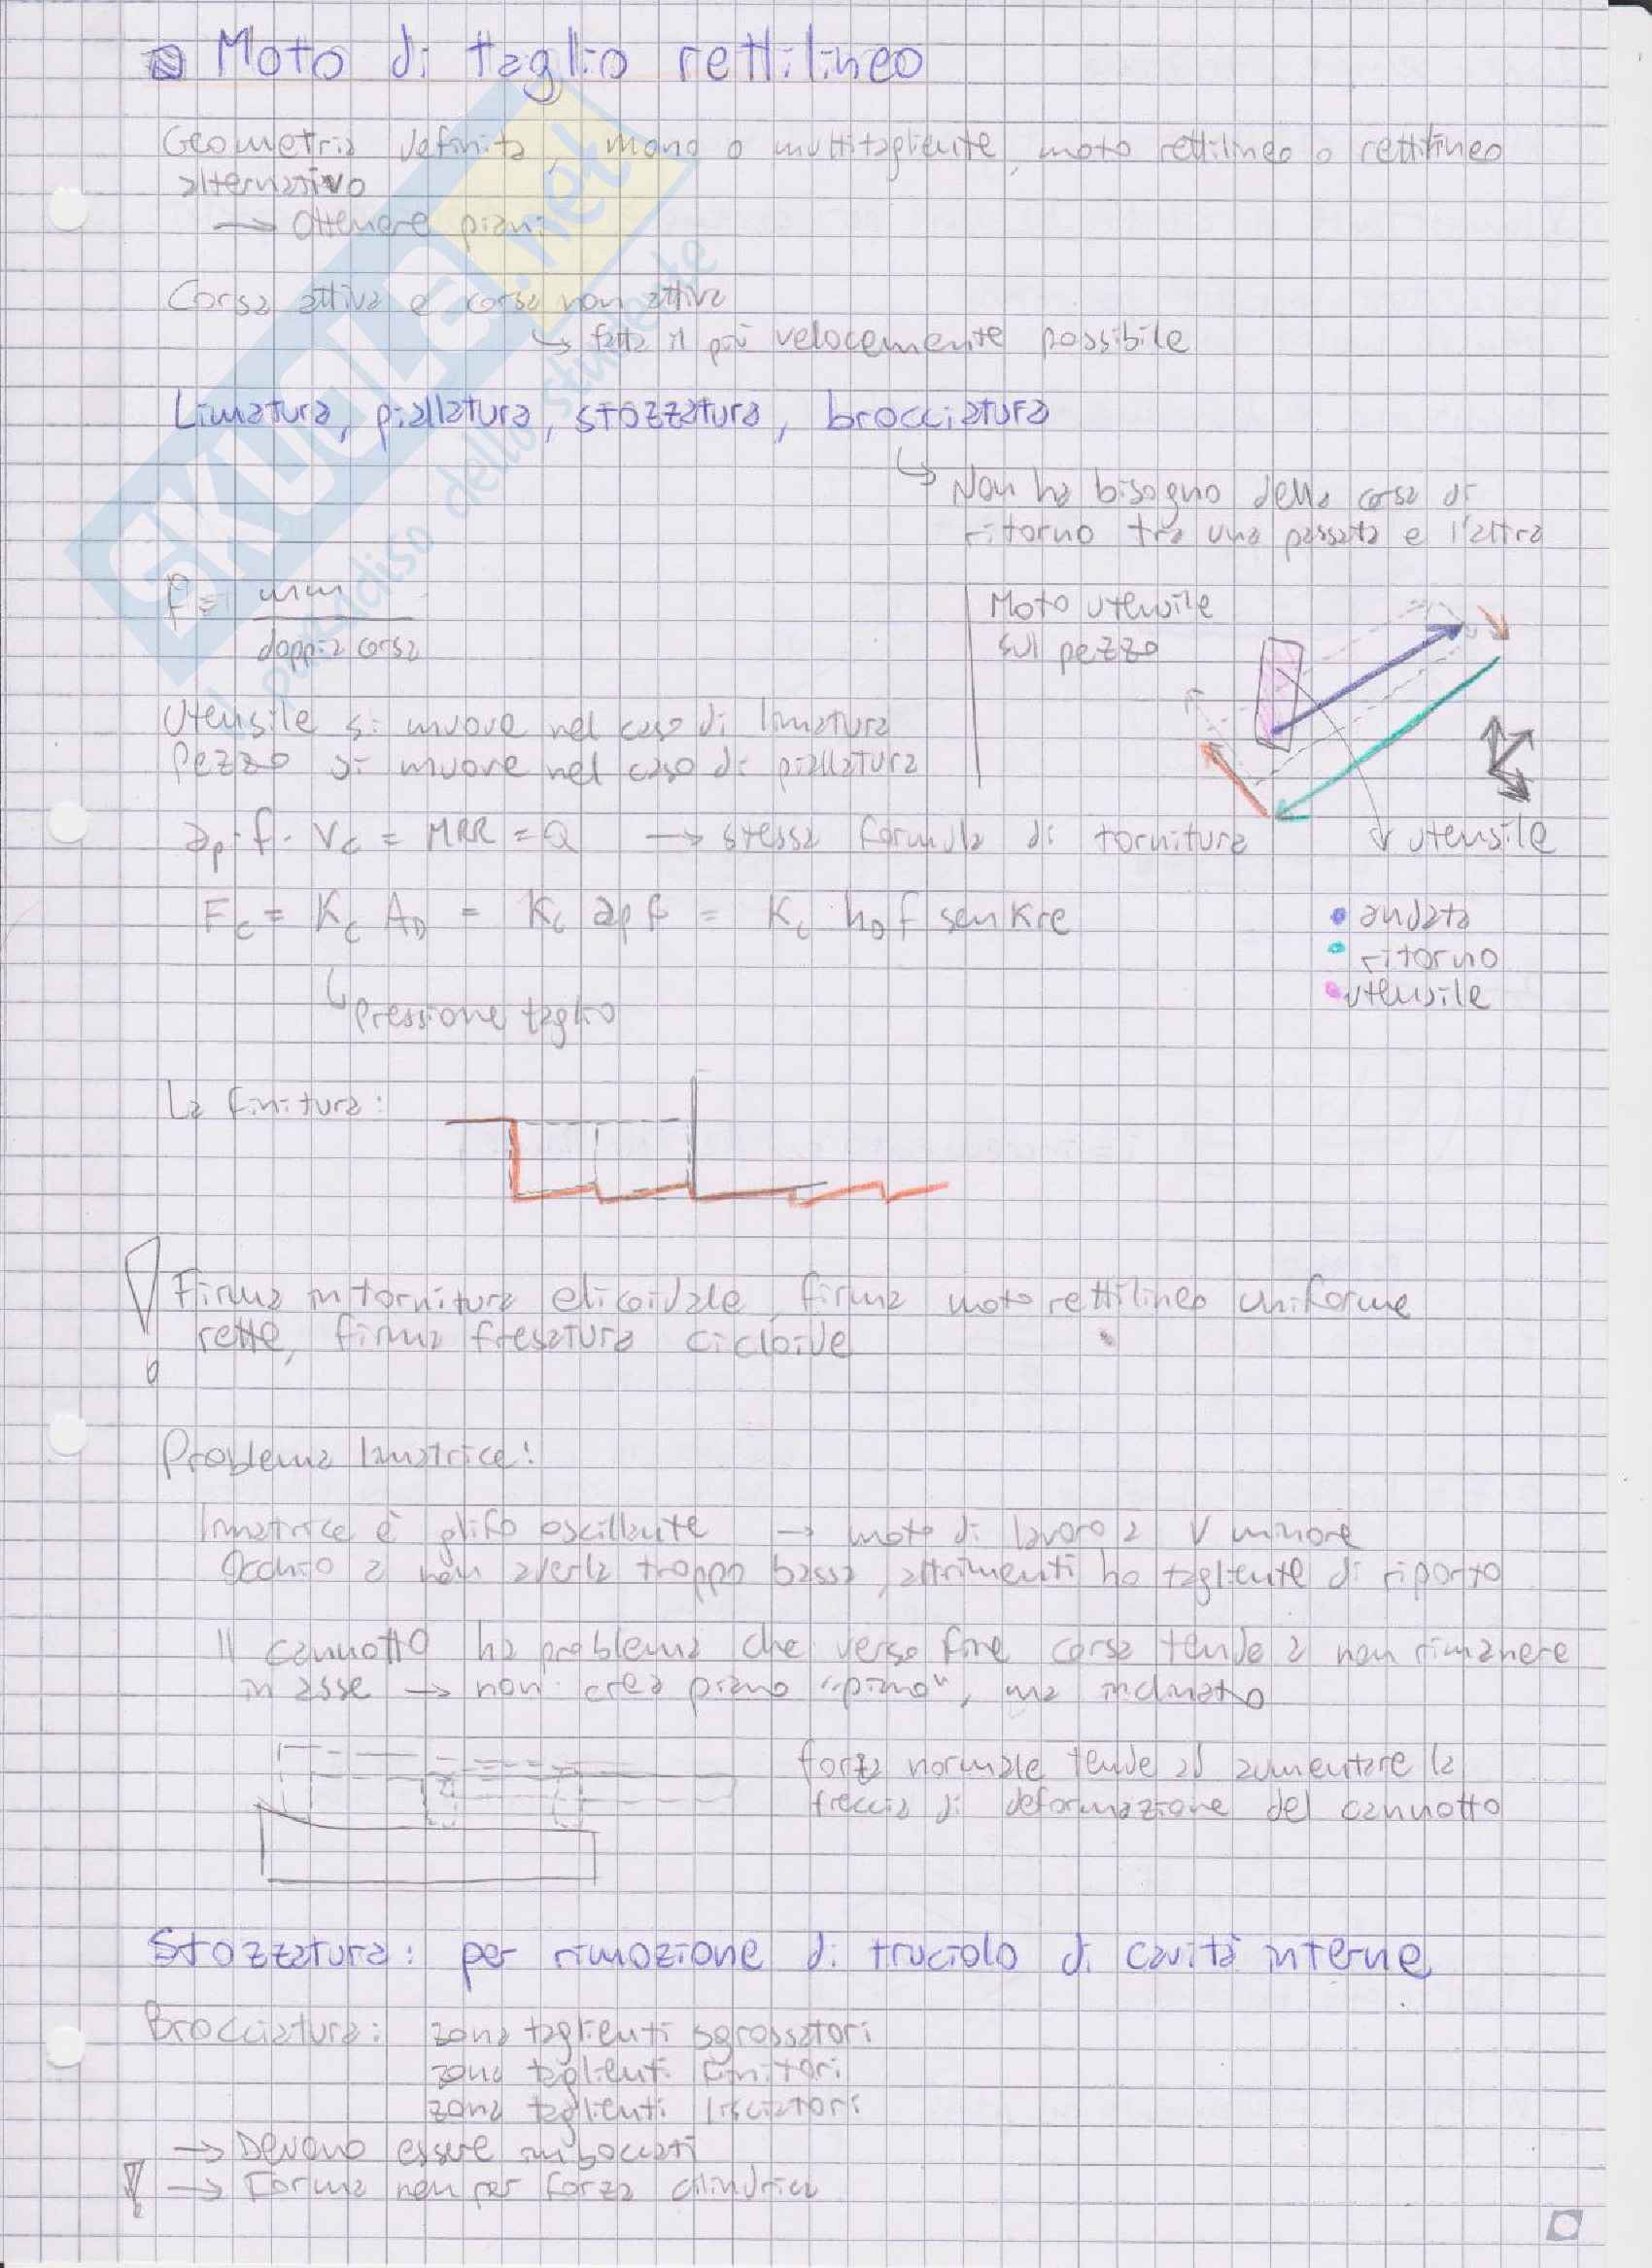 Moto di taglio rettilineo
Geometria definita, mono o multitagliente, moto rettilineo o rettilineo
alternativo
→ Ottenere piani
Corsa attiva e corsa non attiva
↳ fatta il più velocemente possibile
Limatura, piallatura, stozzatura, brocciatura
↳ Non ha bisogno della corsa di
ritorno tra una passata e l'altra
f = mm / doppia corsa
Moto utensile
sul pezzo
Utensile si muove nel caso di limatura
Pezzo si muove nel caso di piallatura
ap · f · Vc = MRR = Q → stessa formula di tornitura
utensile
Fc = Kc AD = Kc ap f = Kc hD f sen Kre
• andata
• ritorno
• utensile
↳ pressione taglio
La finitura:
! Firma in tornitura elicoidale, firma moto rettilineo uniforme
rette, firma fresatura cicloide
Problema limatrice:
limatrice è glifo oscillante → moto di lavoro a V minore
Occhio a non averla troppo bassa, altrimenti ho tagliente di riporto
Il cannotto ha problema che verso fine corsa tende a non rimanere
in asse → non crea piano "piano", ma inclinato
forza normale tende ad aumentare la
freccia di deformazione del cannotto
Stozzatura: per rimozione di truciolo di cavità interne
Brocciatura: zona taglienti sgrossatori
zona taglienti finitori
zona taglienti lisciatori
→ Devono essere imboccati
! → Forma non per forza cilindrica
SKUOLA.net
il paradiso dello studente